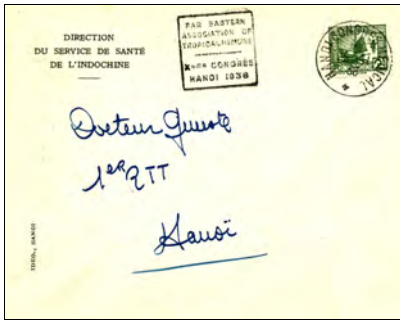 DIRECTION
DU SERVICE DE SANTÉ
DE L'INDOCHINE
FAR EASTERN
ASSOCIATION OF
TROPICAL
Xème CONGRÈS
HANOI 1938
HANOI
Docteur
1er RTT
Hanoï
IDEO, HANOI